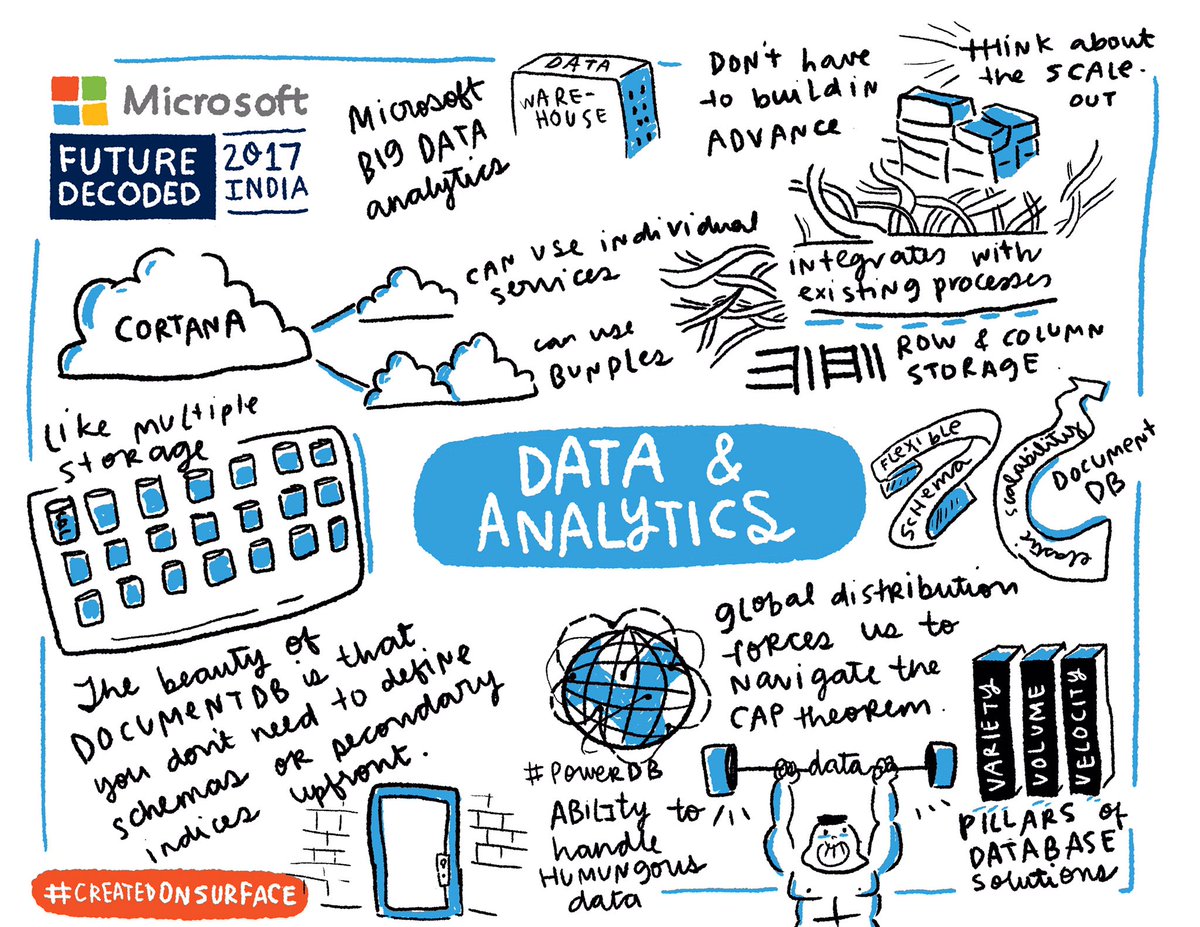 Microsoft
FUTURE
DECODED
2017
INDIA
Microsoft
BIG DATA
analytics
DATA
WARE-
HOUSE
DON'T have
to build in
ADVANCE
THINK about
the SCALE.
OUT
CORTANA
CAN USE individual
services
can use
BUNDLES
integrates with
existing processes
ROW & COLUMN
STORAGE
Like multiple
storage
DATA &
ANALYTICS
FLEXIBLE
SCHEMA
elastic scalability
DOCUMENT
DB
The beauty of
DOCUMENTDB is that
you don't need to define
schemas or secondary
indices upfront.
global distribution
forces us to
navigate the
CAP theorem.
#POWERDB
ABILITY to
handle
HUMUNGOUS
data
data
VARIETY
VOLUME
VELOCITY
PILLARS of
DATABASE
solutions
#CREATEDONSURFACE